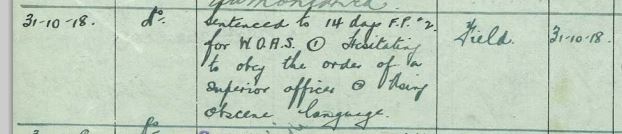 31-10-18. do. Sentenced to 14 days F.P. #2. Field. 31-10-18.
for W.O.A.S. ① Hesitating
to obey the order of a
superior officer ② Using
obscene language.